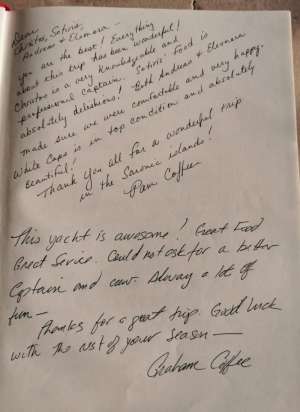 Dear
Christos, Sotiris,
Andreas & Eleonora —
You are the best! Everything
about this trip has been wonderful!
Christos is a very knowledgeable and
professional Captain. Sotiris' Food is
absolutely delishious! Both Andreas & Eleonora
made sure we were comfortable and very happy.
White Caps is in top condition and absolutely
Beautiful!
Thank you all for a wonderful trip
in the Saronic islands!
Pam Coffee
This yacht is awesome! Great Food
Great Service. Could not ask for a better
Captain and crew. Always a lot of
fun —
Thanks for a great trip. Good luck
with the rest of your season —
Graham Coffee